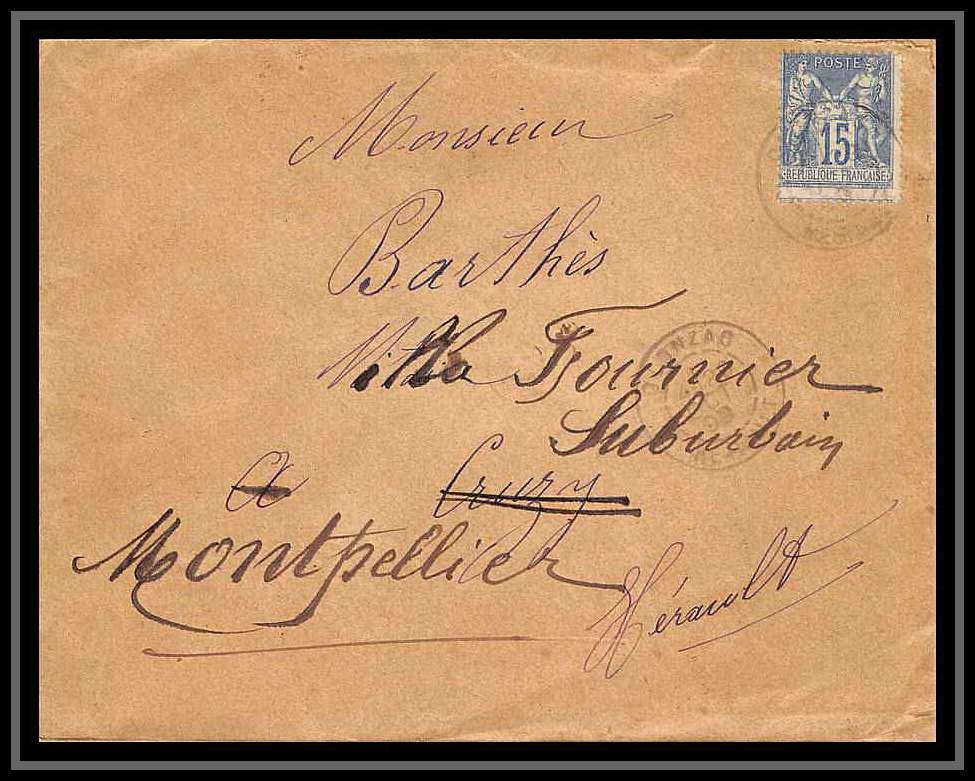 POSTE
15
REPUBLIQUE FRANÇAISE
Monsieur
Barthès
Villa Fournier
Suburbain
a Cruzy
Montpellier
Hérault